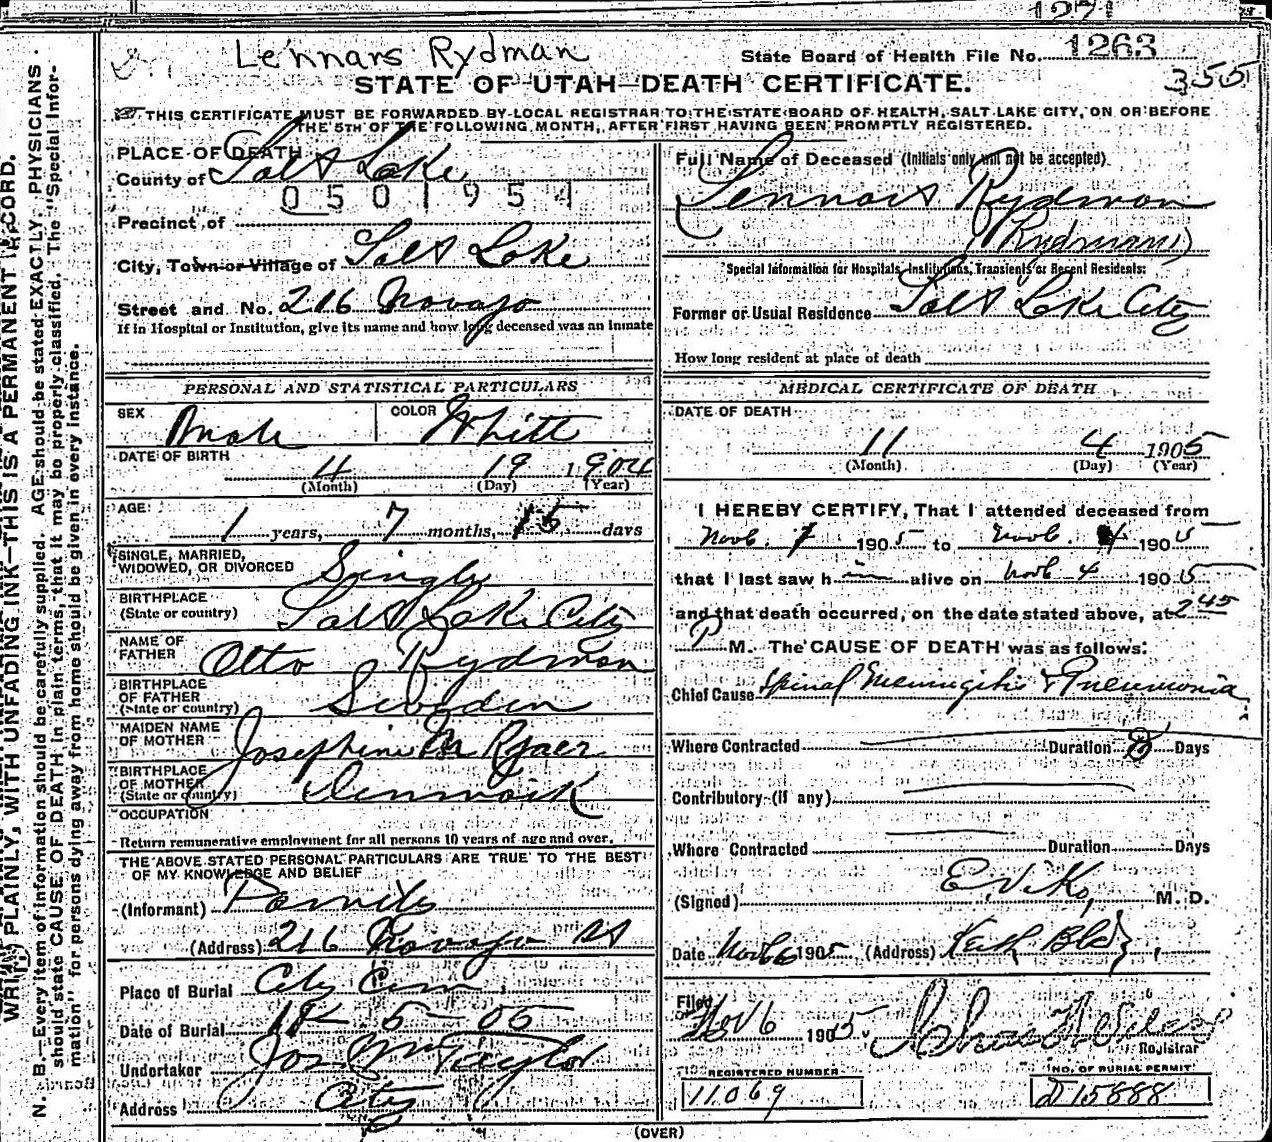 1271
Lennars Rydman
State Board of Health File No. 1263
355
STATE OF UTAH—DEATH CERTIFICATE.
THIS CERTIFICATE MUST BE FORWARDED BY LOCAL REGISTRAR TO THE STATE BOARD OF HEALTH, SALT LAKE CITY, ON OR BEFORE
THE 5TH OF THE FOLLOWING MONTH, AFTER FIRST HAVING BEEN PROMPTLY REGISTERED.
WRITE PLAINLY, WITH UNFADING INK—THIS IS A PERMANENT RECORD.
N. B.—Every item of information should be carefully supplied. AGE should be stated EXACTLY. PHYSICIANS
should state CAUSE OF DEATH in plain terms, that it may be properly classified. The "Special Infor-
mation" for persons dying away from home should be given in every instance.
PLACE OF DEATH
County of Salt Lake
0501954
Precinct of
City, Town or Village of Salt Lake
Street and No. 216 Navajo
If in Hospital or Institution, give its name and how long deceased was an inmate
PERSONAL AND STATISTICAL PARTICULARS
SEX Male COLOR White
DATE OF BIRTH
4 19 1904
(Month) (Day) (Year)
AGE:
1 years, 7 months, 15 days
SINGLE, MARRIED,
WIDOWED, OR DIVORCED Single
BIRTHPLACE
(State or country) Salt Lake City
NAME OF
FATHER Otto Rydman
BIRTHPLACE
OF FATHER
(State or country) Sweden
MAIDEN NAME
OF MOTHER Josephine M
BIRTHPLACE
OF MOTHER
(State or country) Denmark
OCCUPATION
Return remunerative employment for all persons 10 years of age and over.
THE ABOVE STATED PERSONAL PARTICULARS ARE TRUE TO THE BEST
OF MY KNOWLEDGE AND BELIEF
(Informant)
(Address) 216 Navajo St
Place of Burial City Cem
Date of Burial 5 05
Undertaker Jos Wm Taylor
Address City
Full Name of Deceased (Initials only will not be accepted)
Lennart Rydman
(Rydman)
Special Information for Hospitals, Institutions, Transients or Recent Residents:
Former or Usual Residence Salt Lake City
How long resident at place of death
MEDICAL CERTIFICATE OF DEATH
DATE OF DEATH
11 4 1905
(Month) (Day) (Year)
I HEREBY CERTIFY, That I attended deceased from
Nov. 1905 to Nov. 4 1905
that I last saw him alive on Nov 4 1905
and that death occurred, on the date stated above, at 2 45
P M. The CAUSE OF DEATH was as follows:
Chief Cause Spinal Meningitis & Pneumonia
Where Contracted Duration 8 Days
Contributory (if any)
Where Contracted Duration Days
(Signed) M. D.
Date Nov 6 1905 (Address) Keith Bld
Filed Nov 6 1905
Registrar
REGISTERED NUMBER
11069
NO. OF BURIAL PERMIT
D15888
(OVER)